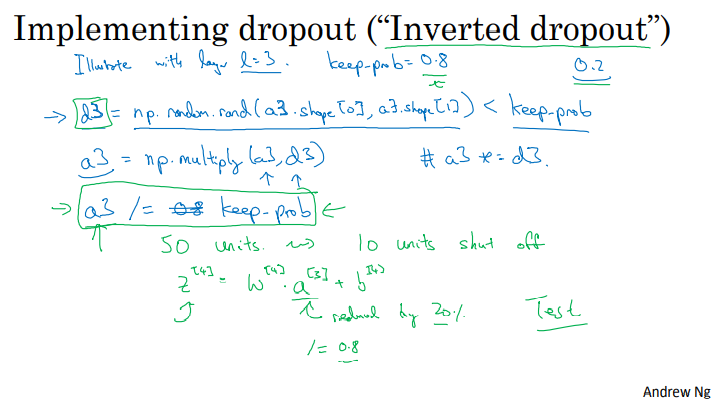 Implementing dropout ("Inverted dropout")
Illustrate with layer l=3. keep-prob = 0.8 0.2
→ d3 = np.random.rand(a3.shape[0], a3.shape[1]) < keep-prob
a3 = np.multiply(a3, d3) # a3 *= d3.
→ a3 /= 0.8 keep-prob ←
50 units. ⇝ 10 units shut off
z^[4] = W^[4] · a^[3] + b^[4]
reduced by 20%. Test
/= 0.8
Andrew Ng